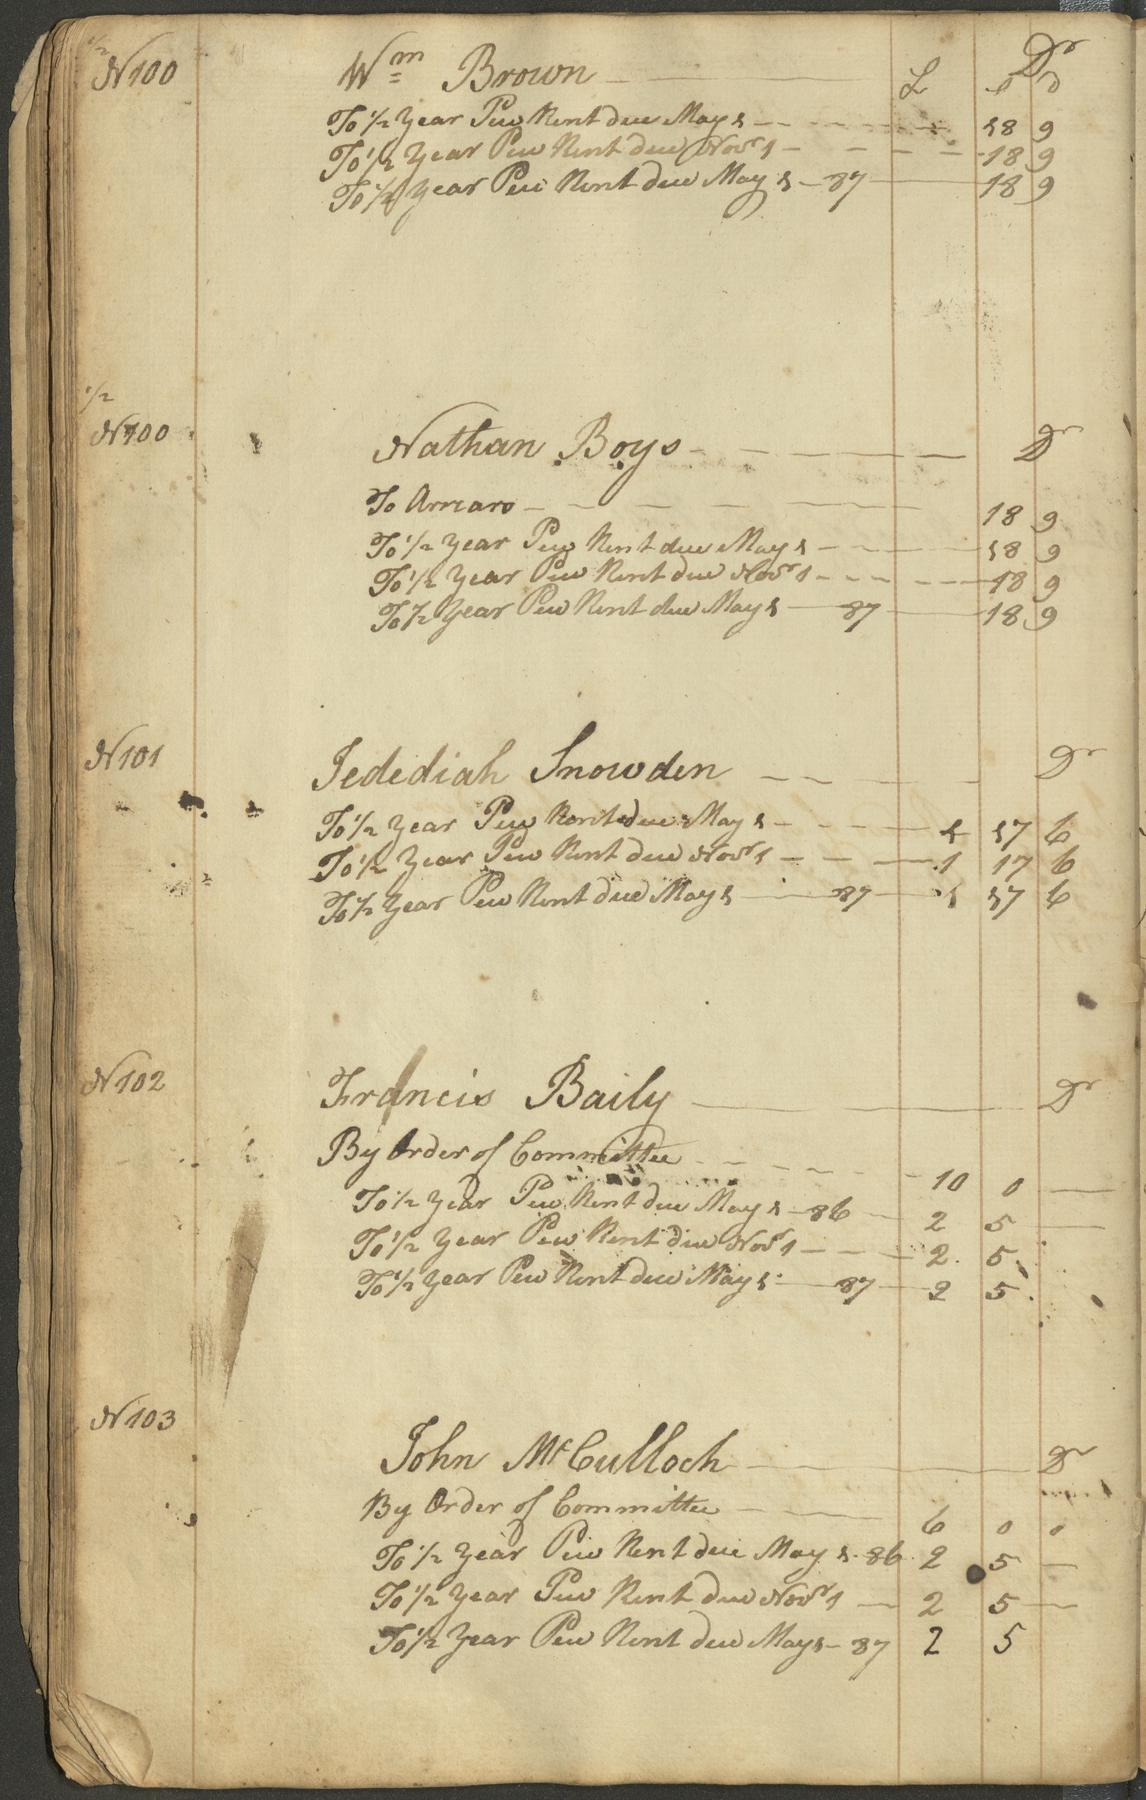 1/2
N 100 Wm Brown Dr
£ s d
To 1/2 Year Pew Rent due May 1 18 9
To 1/2 Year Pew Rent due Novr 1 18 9
To 1/2 Year Pew Rent due May 1 87 18 9
1/2
N 100 Nathan Boys Dr
To Arrears 18 9
To 1/2 Year Pew Rent due May 1 18 9
To 1/2 Year Pew Rent due Novr 1 18 9
To 1/2 Year Pew Rent due May 1 87 18 9
N 101 Jedediah Snowden Dr
To 1/2 Year Pew Rent due May 1 1 17 6
To 1/2 Year Pew Rent due Novr 1 1 17 6
To 1/2 Year Pew Rent due May 1 87 1 17 6
N 102 Francis Baily Dr
By Order of Committee 10 0
To 1/2 Year Pew Rent due May 1 86 2 5
To 1/2 Year Pew Rent due Novr 1 2 5
To 1/2 Year Pew Rent due May 1 87 2 5
N 103 John McCulloch Dr
By Order of Committee 6 0 0
To 1/2 Year Pew Rent due May 1 86 2 5
To 1/2 Year Pew Rent due Novr 1 2 5
To 1/2 Year Pew Rent due May 1 87 2 5